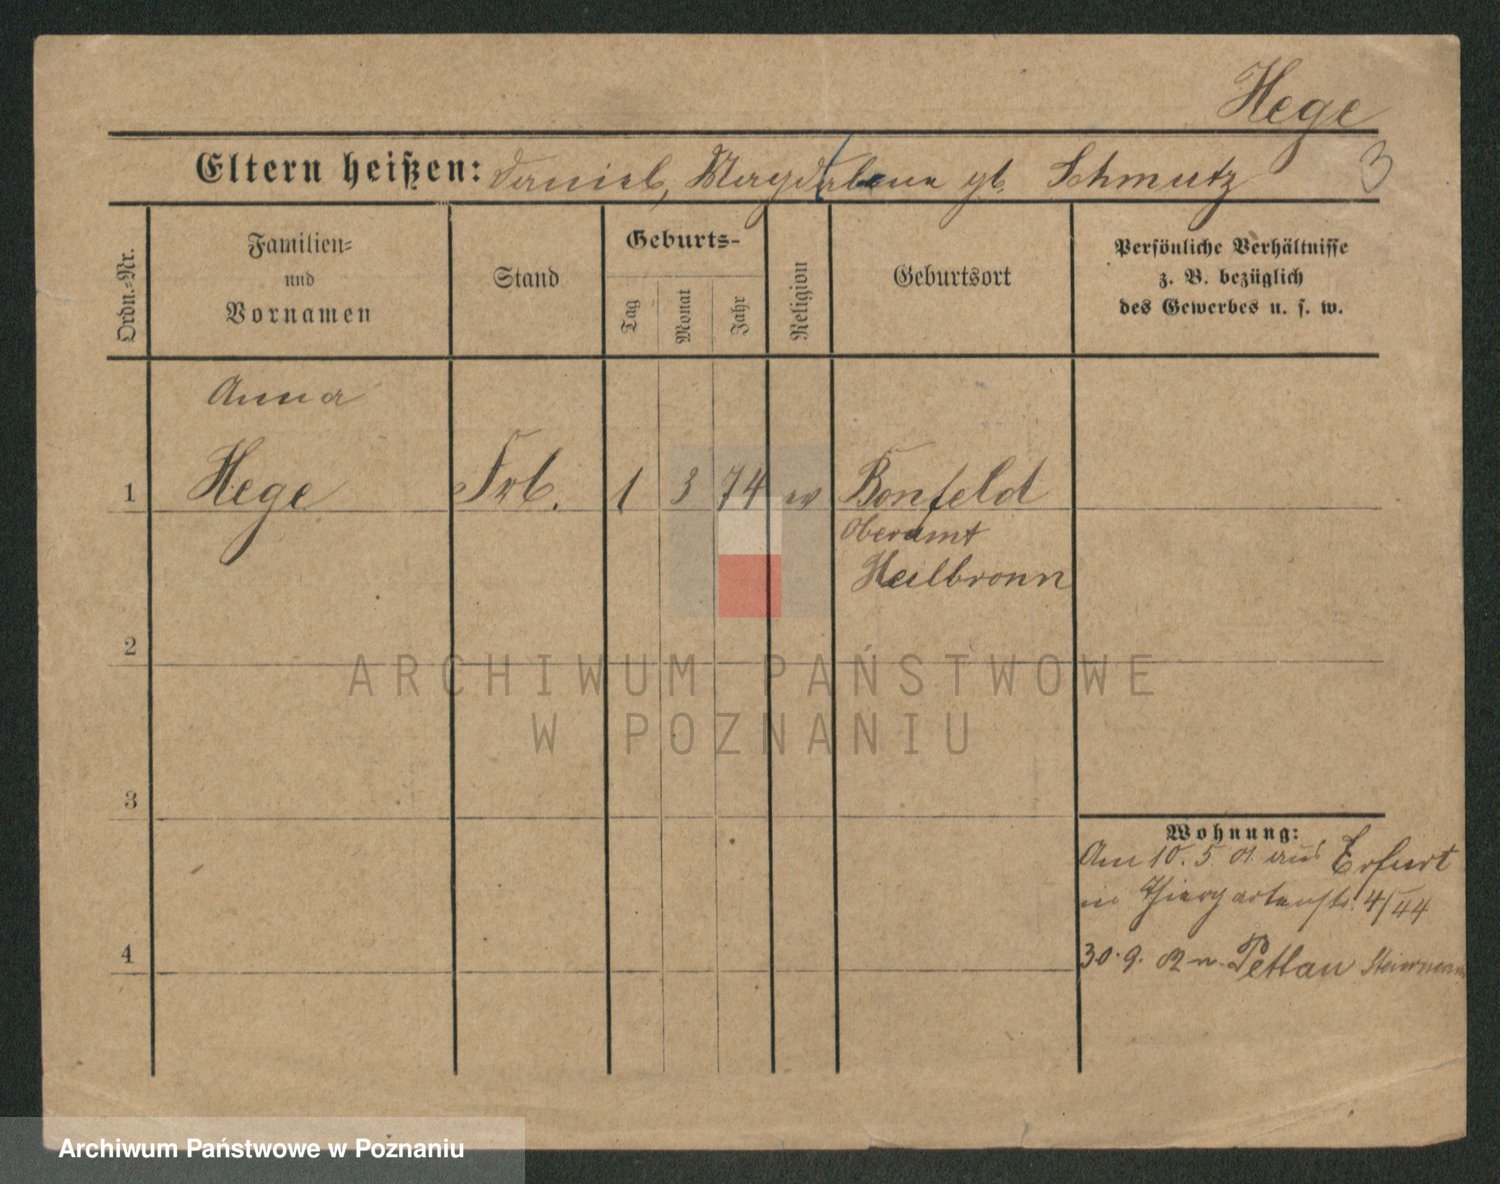 Hege
3
Eltern heißen: Daniel, Magdalena gb. Schmutz
Ordn.-Nr.
Familien-
und
Vornamen
Stand
Geburts-
Tag
Monat
Jahr
Religion
Geburtsort
Persönliche Verhältnisse
z. B. bezüglich
des Gewerbes u. s. w.
Anna
1 Hege Frl. 1 3 74 ev Bonfeld
Oberamt
Heilbronn
2
ARCHIWUM PAŃSTWOWE
W POZNANIU
3
Wohnung:
Am 10. 5. 01. aus Erfurt
in Thiergartenstr. 4/44
4
30. 9. 02 n. Pettau
Archiwum Państwowe w Poznaniu